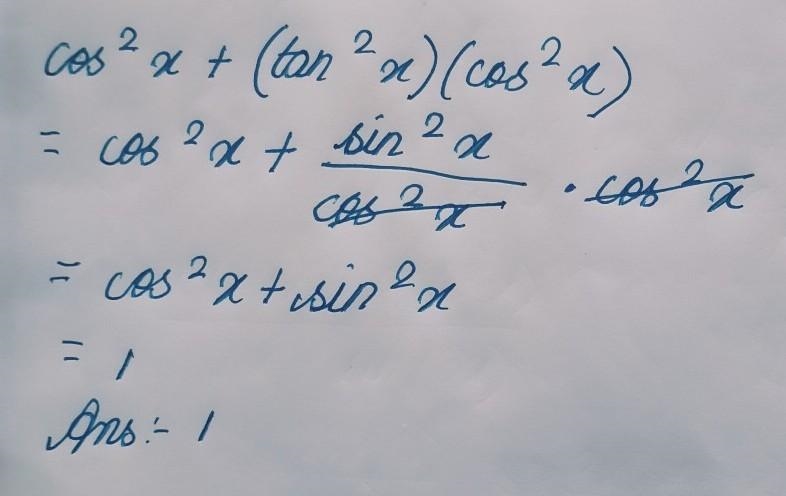 cos²x + (tan²x)(cos²x)
= cos²x + sin²x/cos²x · cos²x
= cos²x + sin²x
= 1
Ans:- 1